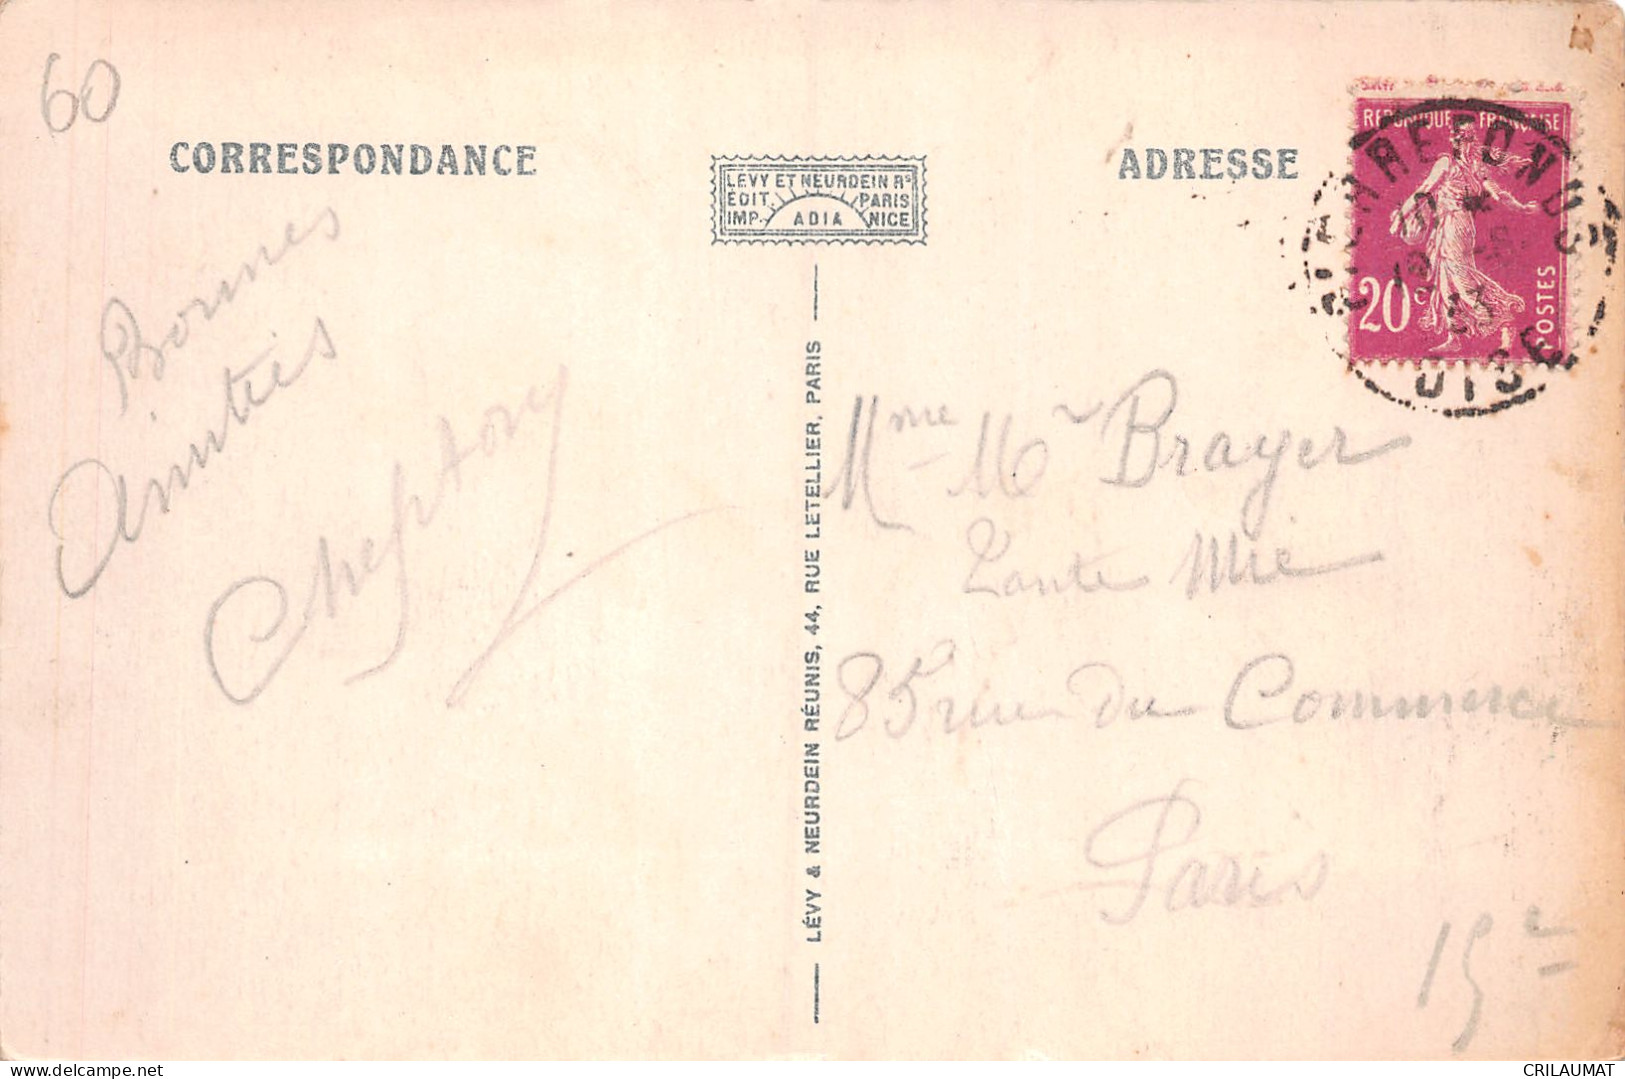 60
CORRESPONDANCE
LEVY ET NEURDEIN Rs
EDIT. PARIS
IMP. ADIA NICE
ADRESSE
REPUBLIQUE FRANÇAISE
20c
POSTES
OISE
Bonnes
Amitiés
LÉVY & NEURDEIN RÉUNIS, 44, RUE LETELLIER, PARIS
Mme Mr Brayer
Tante Mie
85 rue du Commerce
Paris
15e
CRILAUMAT